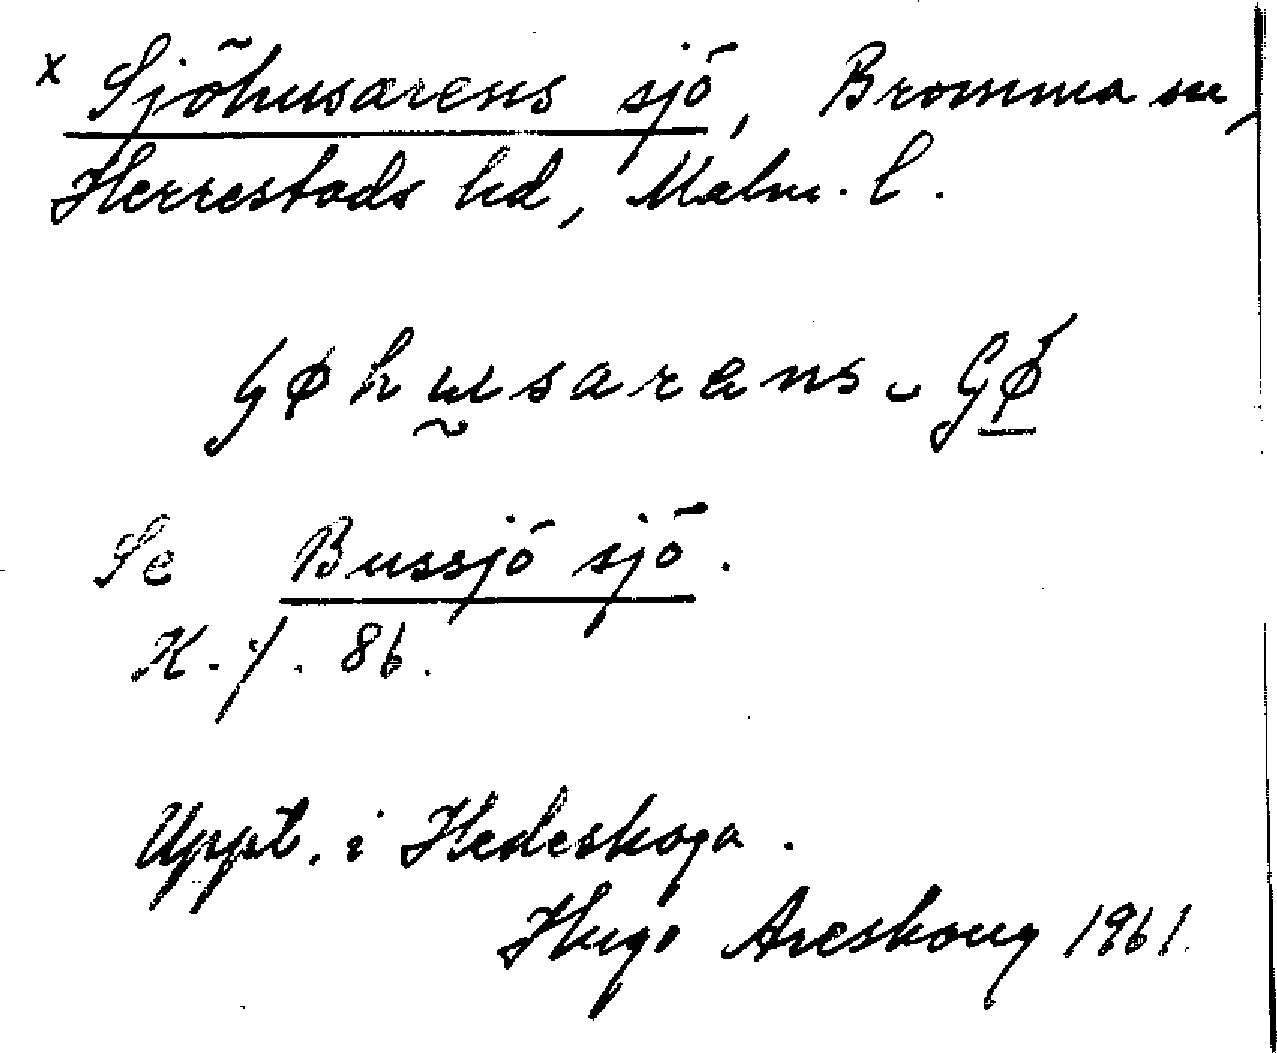 x Sjöhusarens sjö, Bromma sn,
Herrestads hd, Malm. l.
ɧøhusarans ɧø
Se Bussjö sjö.
K. ./. 86.
Uppt. i Hedeskoga.
Hugo Areskoug 1961.